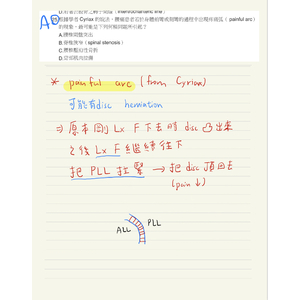 A
根據學者 Cyriax 的說法，腰椎患者若於身體前彎或側彎的過程中出現疼痛弧（painful arc）
的現象，最可能是下列何種問題所引起？
A.腰椎間盤突出
B.脊椎狹窄（spinal stenosis）
C.腰椎
D.
* painful arc (from Cyriax)
可能有disc herniation
⇒ 原本剛 Lx F 下去時 disc 凸出來
之後 Lx F 繼續往下
把 PLL 拉緊 → 把 disc 頂回去
(pain ↓)
ALL
PLL